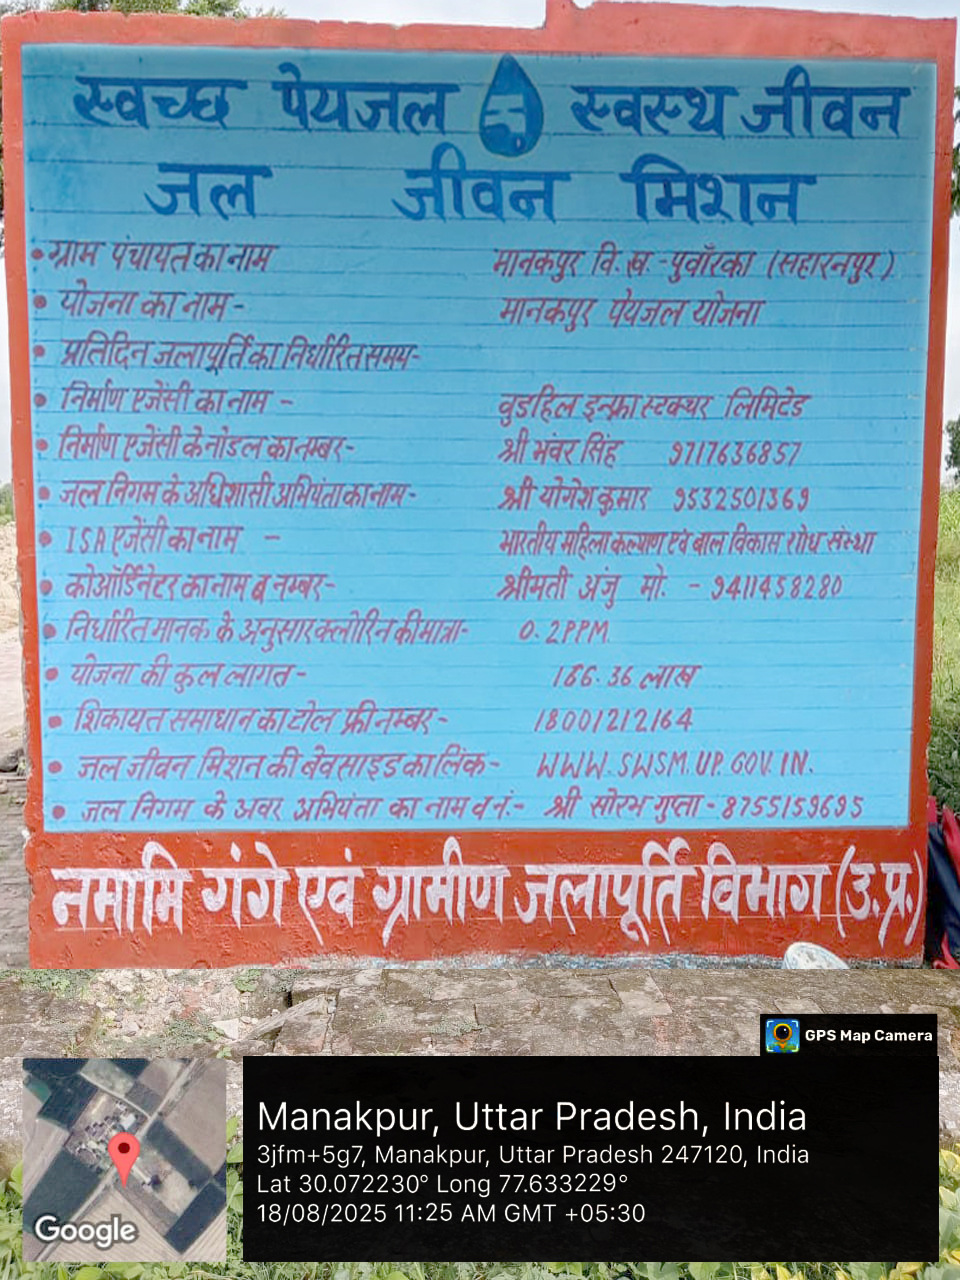 स्वच्छ पेयजल स्वस्थ जीवन
जल जीवन मिशन
• ग्राम पंचायत का नाम मानकपुर वि. ख. - पुवाँरका (सहारनपुर)
• योजना का नाम - मानकपुर पेयजल योजना
• प्रतिदिन जलापूर्ति का निर्धारित समम-
• निर्माण एजेंसी का नाम - वुडहिल इन्फ्रा स्टक्चर लिमिटेड
• निर्माण एजेंसी के नोडल का नम्बर- श्री भंवर सिंह 9717636857
• जल निगम के अधिशासी अभियंता का नाम- श्री योगेश कुमार 9532501369
• ISA एजेंसी का नाम - भारतीय महिला कल्याण एवं बाल विकास शोध संस्था
• कोऑर्डिनेटर का नाम व नम्बर- श्रीमती अंजु मो. - 9411458280
• निर्धारित मानक के अनुसार क्लोरिन की मात्रा- 0.2PPM
• योजना की कुल लागत- 166.36 लाख
• शिकायत समाधान का टोल फ्री नम्बर- 18001212164
• जल जीवन मिशन की बेवसाइड का लिंक- WWW.SWSM.UP.GOV.IN.
• जल निगम के अवर अभियंता का नाम व नं.- श्री सोरभ गुप्ता - 8755159695
नमामि गंगे एवं ग्रामीण जलापूर्ति विभाग (उ.प्र.)
GPS Map Camera
Manakpur, Uttar Pradesh, India
3jfm+5g7, Manakpur, Uttar Pradesh 247120, India
Lat 30.072230° Long 77.633229°
18/08/2025 11:25 AM GMT +05:30
Google